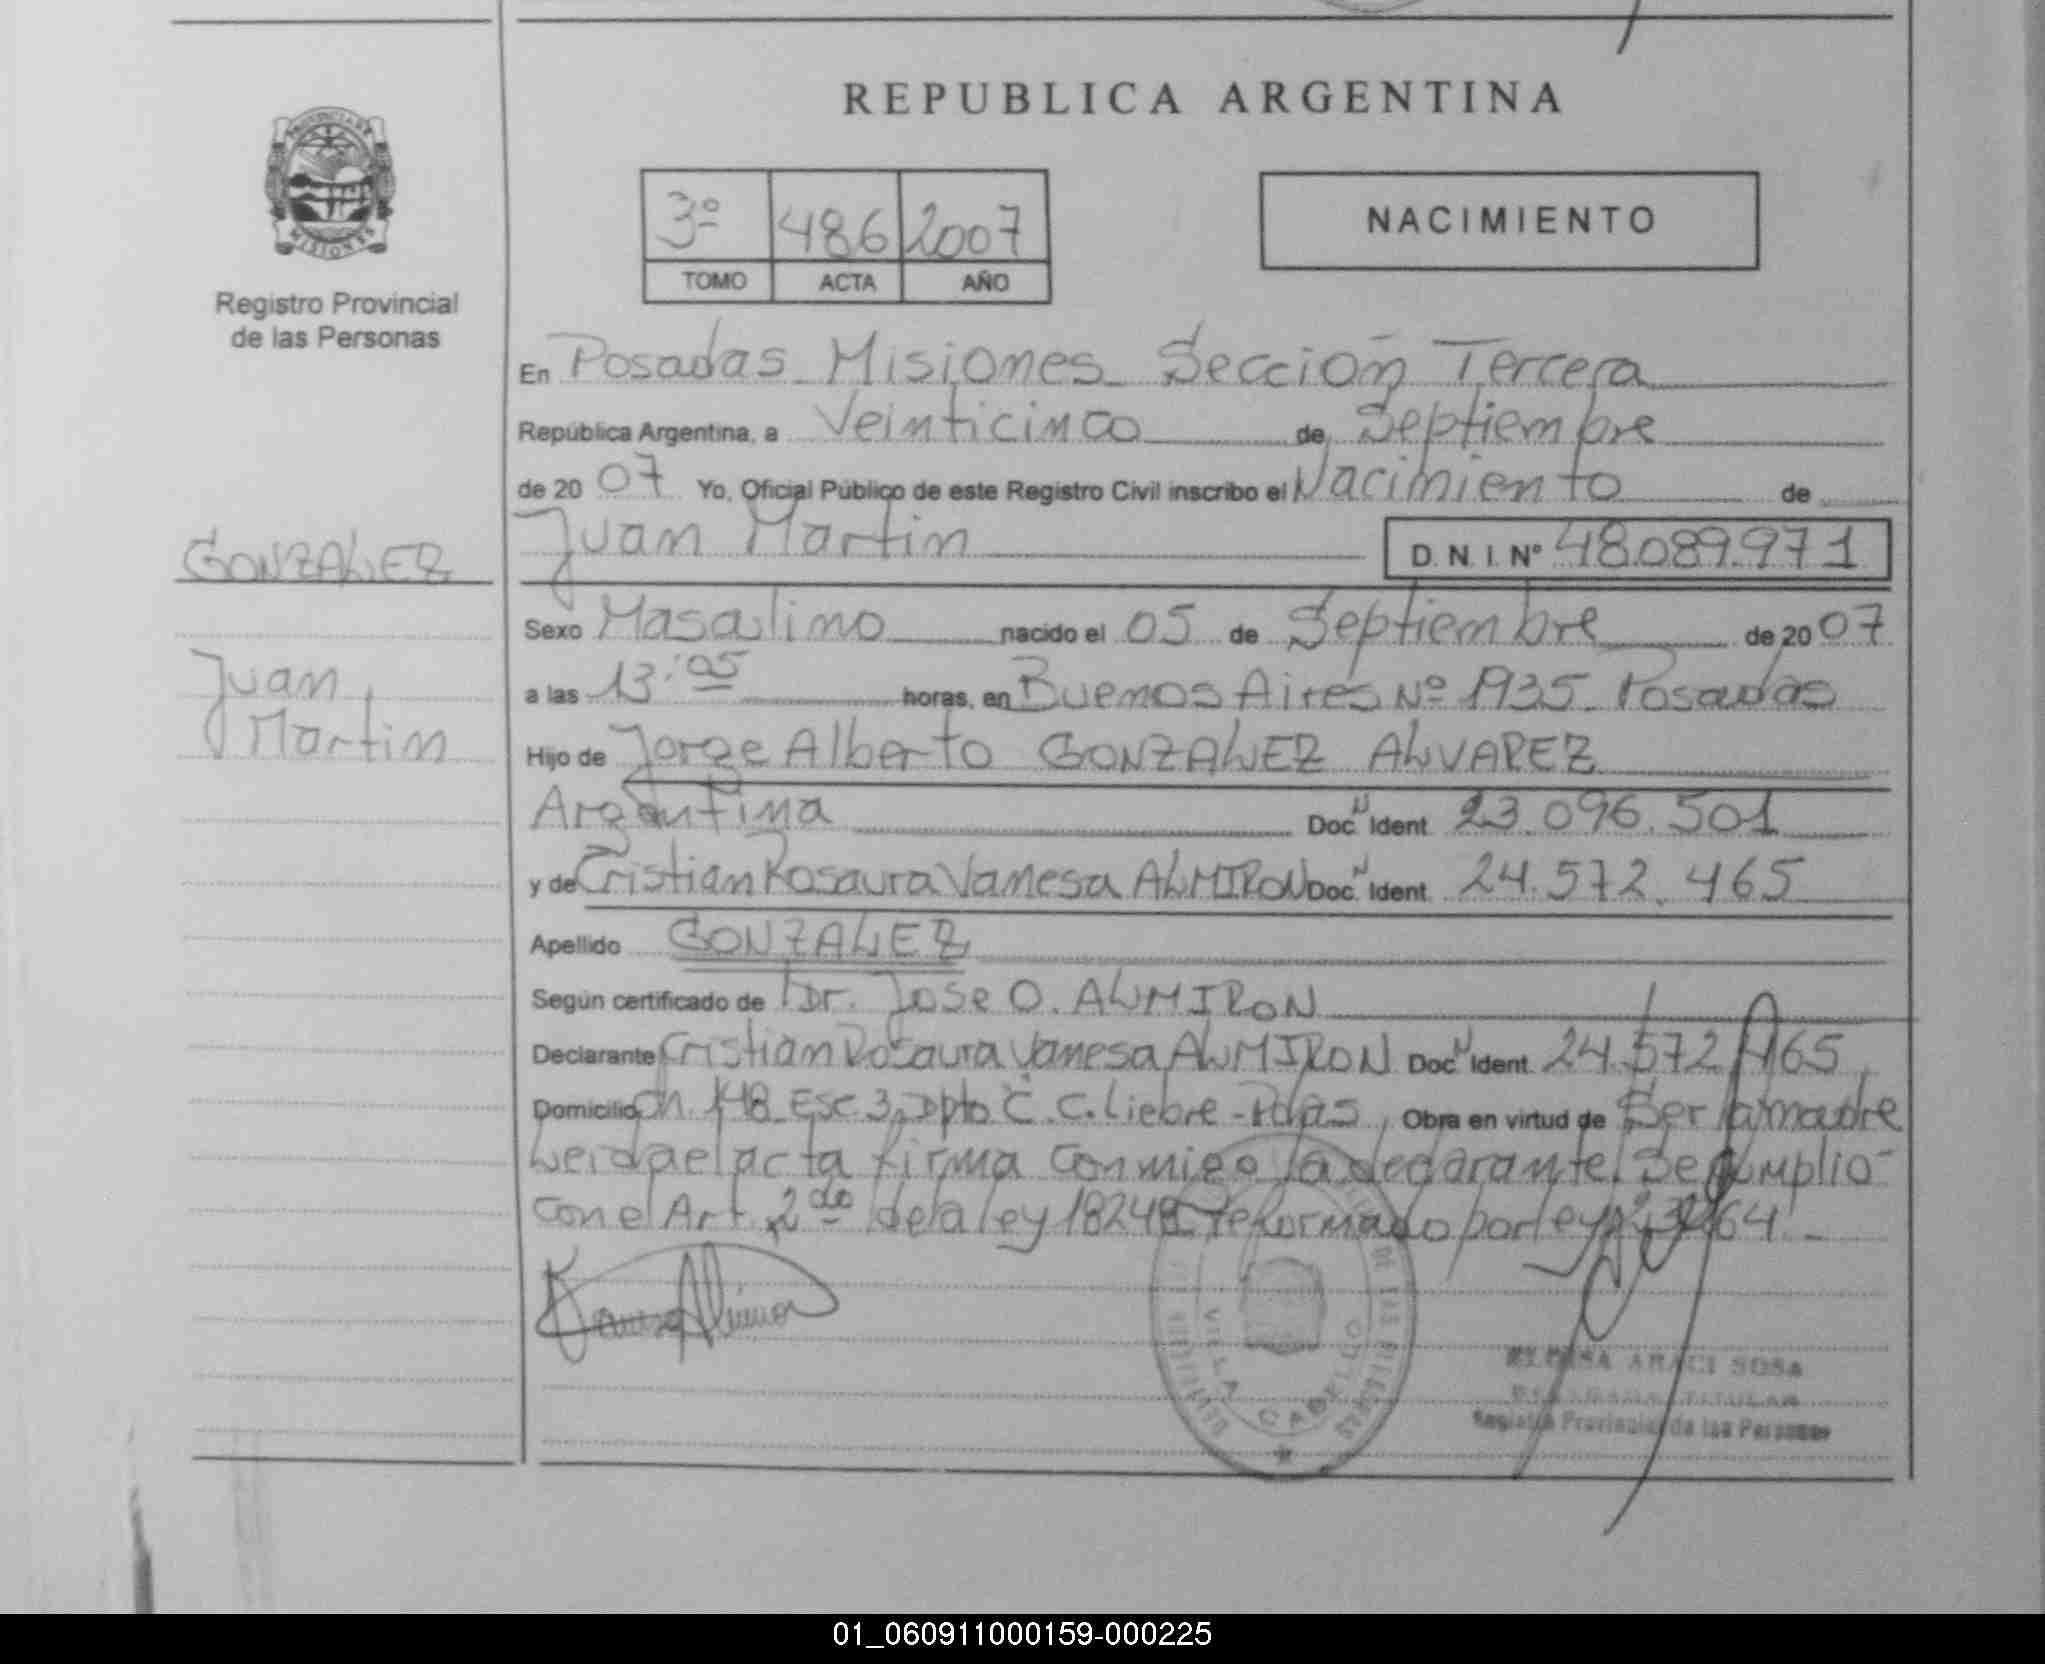 REPUBLICA ARGENTINA
PROVINCIA DE
MISIONES
Registro Provincial
de las Personas
3º 486 2007
TOMO ACTA AÑO
NACIMIENTO
En Posadas Misiones Sección Tercera
República Argentina, a Veinticinco de Septiembre
de 20 07 Yo, Oficial Público de este Registro Civil inscribo el Nacimiento de
GONZALEZ
Juan Martin D. N. I. Nº 48.089.971
Sexo Masculino nacido el 05 de Septiembre de 20 07
Juan
Martin
a las 13:05 horas, en Buenos Aires Nº 1935. Posadas
Hijo de Jorge Alberto GONZALEZ ALVAREZ
Argentina Doc. N Ident. 23.096.501
y de Cristian Rosaura Vanesa ALMIRON Doc. N Ident. 24.572.465
Apellido GONZALEZ
Según certificado de Dr. Jose O. ALMIRON
Declarante Cristian Rosaura Vanesa ALMIRON Doc. N Ident. 24.572.465
Domicilio Ch. 148 Esc. 3, Dpto C. C. Liebre - Pdas, Obra en virtud de Ser la madre
Leida el acta firma conmigo la declarante. Se cumplio
con el Art. 2do de la ley 18248 reformado por ley
VILLA CABELLO
DE LAS PERSONAS
ARACI SOSA
TITULAR
Registro Provincial de las Personas
01_060911000159-000225